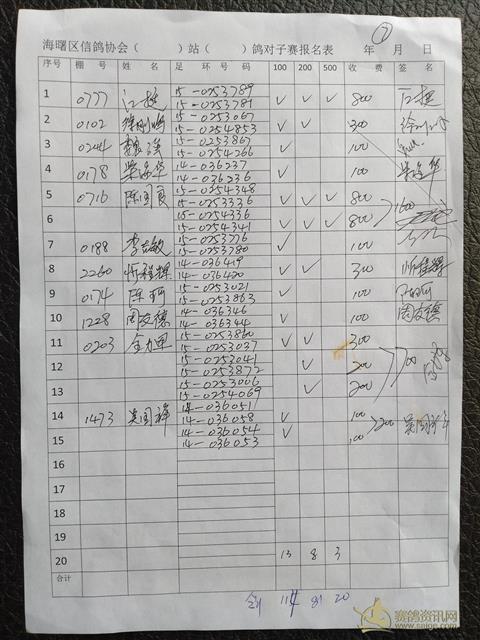 ⑦
海曙区信鸽协会（ ）站（ ）鸽对子赛报名表 年 月 日
序号 棚 号 姓 名 足 环 号 码 100 200 500 收 费 签 名
1 0777 江挺 15-0253789 ✓ ✓ ✓ 800 江挺
15-0253781
2 0102 15-0253067 ✓ ✓ 300
15-0254853
3 0244 15-0253867 ✓ 100
15-0254266
4 0178 14-036237 ✓ 100
14-036236
5 0716 陈国良 15-0254348 ✓ ✓ ✓ 800 1600
15-0253336
6 15-0254336 ✓ ✓ ✓ 800
15-0254341
7 0188 李敏 15-0253776 ✓ 100
15-0253780
8 2260 忻程辉 14-036419 ✓ ✓ 300 忻程辉
14-036420
9 0174 陈 15-0253021 ✓ 100
15-0253863
10 1228 周友德 14-036346 ✓ 100 周友德
14-036344
11 0203 15-0253860 ✓ ✓ 300
15-0253037
12 15-0253041 ✓ 200 700
15-0253872
13 15-0253006 ✓ 200
15-0254069
14 1473 吴国祥 14-036051 ✓ 100 200 吴国祥
14-036058
15 14-036054 ✓ 100
14-036053
16
17
18
19
20 13 8 3
合计
114 81 20
赛鸽资讯网
www.saige.com